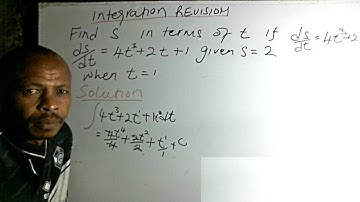 Integration REVISION
Find S in terms of t if ds/dt = 4t³+2
ds/dt = 4t³+2t+1 given s=2
when t=1
Solution
∫4t³+2t¹+1t⁰dt
= 4t⁴/4 + 2t²/2 + t¹/1 + C